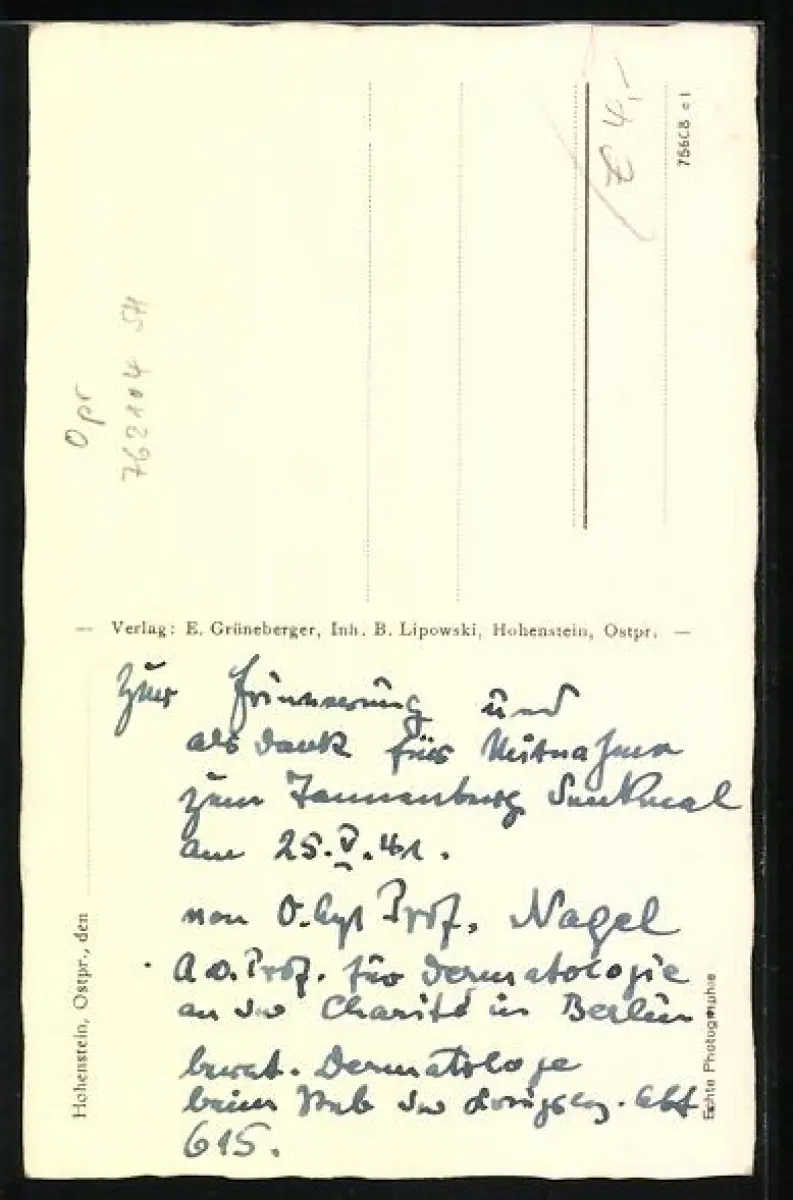 € 4,-
75608 e 1
Opr
762104 SH
— Verlag: E. Grüneberger, Inh. B. Lipowski, Hohenstein, Ostpr. —
Zur Erinnerung und
als Dank für Mitnahme
zum Tannenberg Denkmal
am 25.V.41.
von Prof. Nagel
a.o. Prof. für Dermatologie
an der Charité in Berlin
berat. Dermatologe
beim Stab der Abt
615.
Hohenstein, Ostpr., den
Echte Photographie